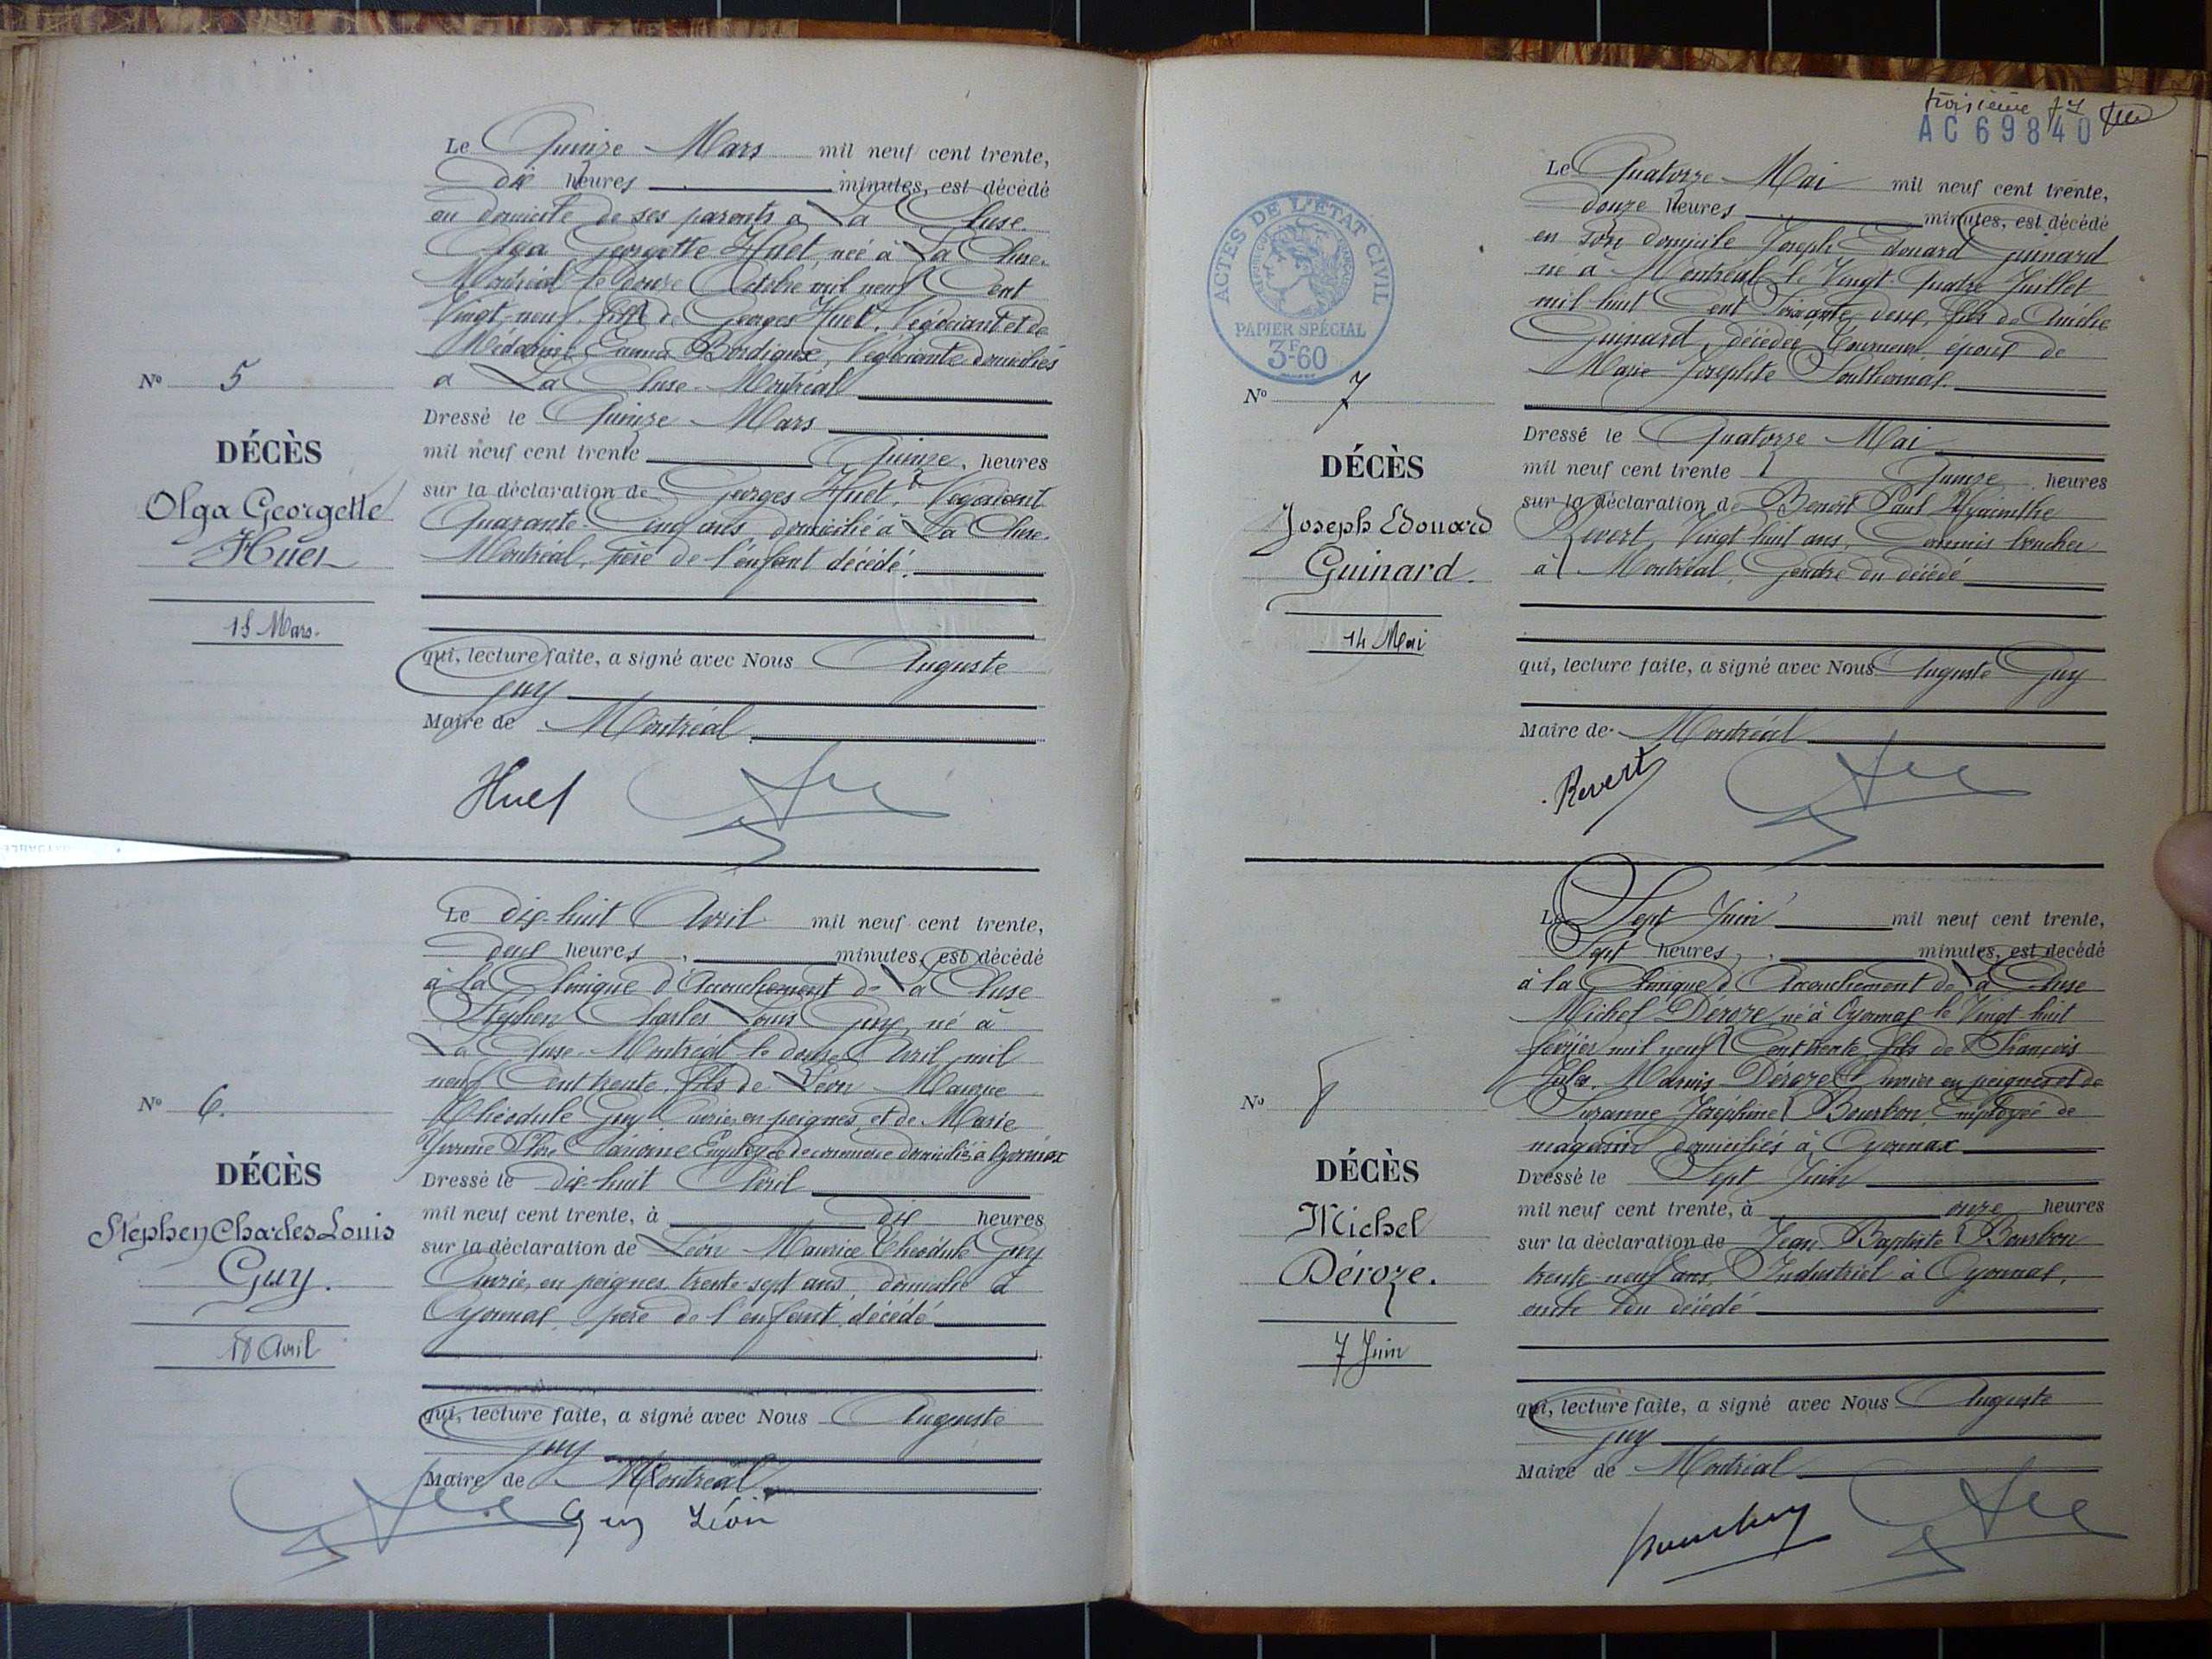 Le Quinze Mars mil neuf cent trente,
dix heures minutes, est décédé
au domicile de ses parents à La Cluse.
Olga Georgette Huet, née à La Cluse.
Montréal le douze Octobre mil neuf Cent
Vingt-neuf. fille de Georges Huet, Négociant et de
Emma Bordigué, Négociante domiciliés
à La Cluse-Montréal
N° 5
DÉCÈS
Olga Georgette
Huet
15 Mars.
Dressé le Quinze Mars
mil neuf cent trente Quinze, heures
sur la déclaration de Georges Huet, Négociant
Quarante-Cinq ans domicilié à La Cluse.
Montréal, père de l'enfant décédé.
qui, lecture faite, a signé avec Nous Auguste
Guy
Maire de Montréal
Huet
Le dix-huit Avril mil neuf cent trente,
deux heures, minutes, est décédé
à la Clinique d'Accouchement de La Cluse
Stephen Charles Louis Guy, né à
La Cluse-Montréal le douze Avril mil
neuf Cent trente, fils de Léon Maurice
Théodule Guy Ouvrier en peignes, et de Marie
Yvonne Employée de commerce domiciliés à Oyonnax
N° 6.
DÉCÈS
Stéphen Charles Louis
Guy.
18 Avril
Dressé le dix-huit Avril
mil neuf cent trente, à dix heures
sur la déclaration de Léon Maurice Théodule Guy
Ouvrier en peignes, trente-sept ans, domicilié à
Oyonnax, père de l'enfant décédé
qui, lecture faite, a signé avec Nous Auguste
Guy
Maire de Montréal
Guy Léon
troisième
AC 69840
ACTES DE L'ÉTAT CIVIL
PAPIER SPÉCIAL
3F-60
Le Quatorze Mai mil neuf cent trente,
douze heures minutes, est décédé
en son domicile Joseph Edouard Guinard
né à Montréal le Vingt-quatre Juillet
mil huit Cent Soixante deux, fils de
Guinard, décédée, Tourneur, époux de
Marie Josephte Southonnax.
N° 7
DÉCÈS
Joseph Edouard
Guinard.
14 Mai
Dressé le Quatorze Mai
mil neuf cent trente Quinze heures
sur la déclaration de Benoit Paul Hyacinthe
Revert, Vingt huit ans, Commis boucher
à Montréal, Gendre du décédé
qui, lecture faite, a signé avec Nous Auguste Guy
Maire de Montréal
Revert
Le Sept Juin mil neuf cent trente,
Sept heures, minutes, est décédé
à la Clinique d'Accouchement de La Cluse
Michel Déroze né à Oyonnax le Vingt huit
février mil neuf Cent trente fils de François
Jules Marius Déroze Ouvrier en peignes et de
Suzanne Joséphine Bourbon Employée de
magasin domiciliés à Oyonnax
N° 8
DÉCÈS
Michel
Déroze.
7 Juin
Dressé le Sept Juin
mil neuf cent trente, à onze heures
sur la déclaration de Jean Baptiste Bourbon
trente-neuf ans, Industriel à Oyonnax,
oncle du décédé
qui, lecture faite, a signé avec Nous Auguste
Guy
Maire de Montréal